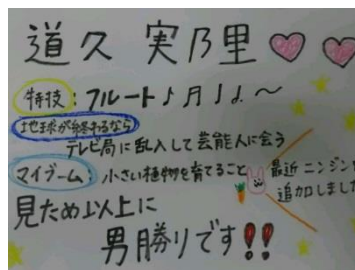 道久 実乃里♡♡
特技：フルート♪♬♩♩.〜
地球が終わるなら
テレビ局に乱入して芸能人に会う
マイブーム：小さい植物を育てること
最近ニンジン
追加しました
見ため以上に
男勝りです!!